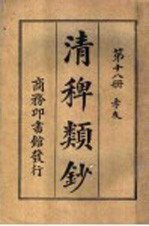 第十八册 孝友
清稗類鈔
商務印書館發行